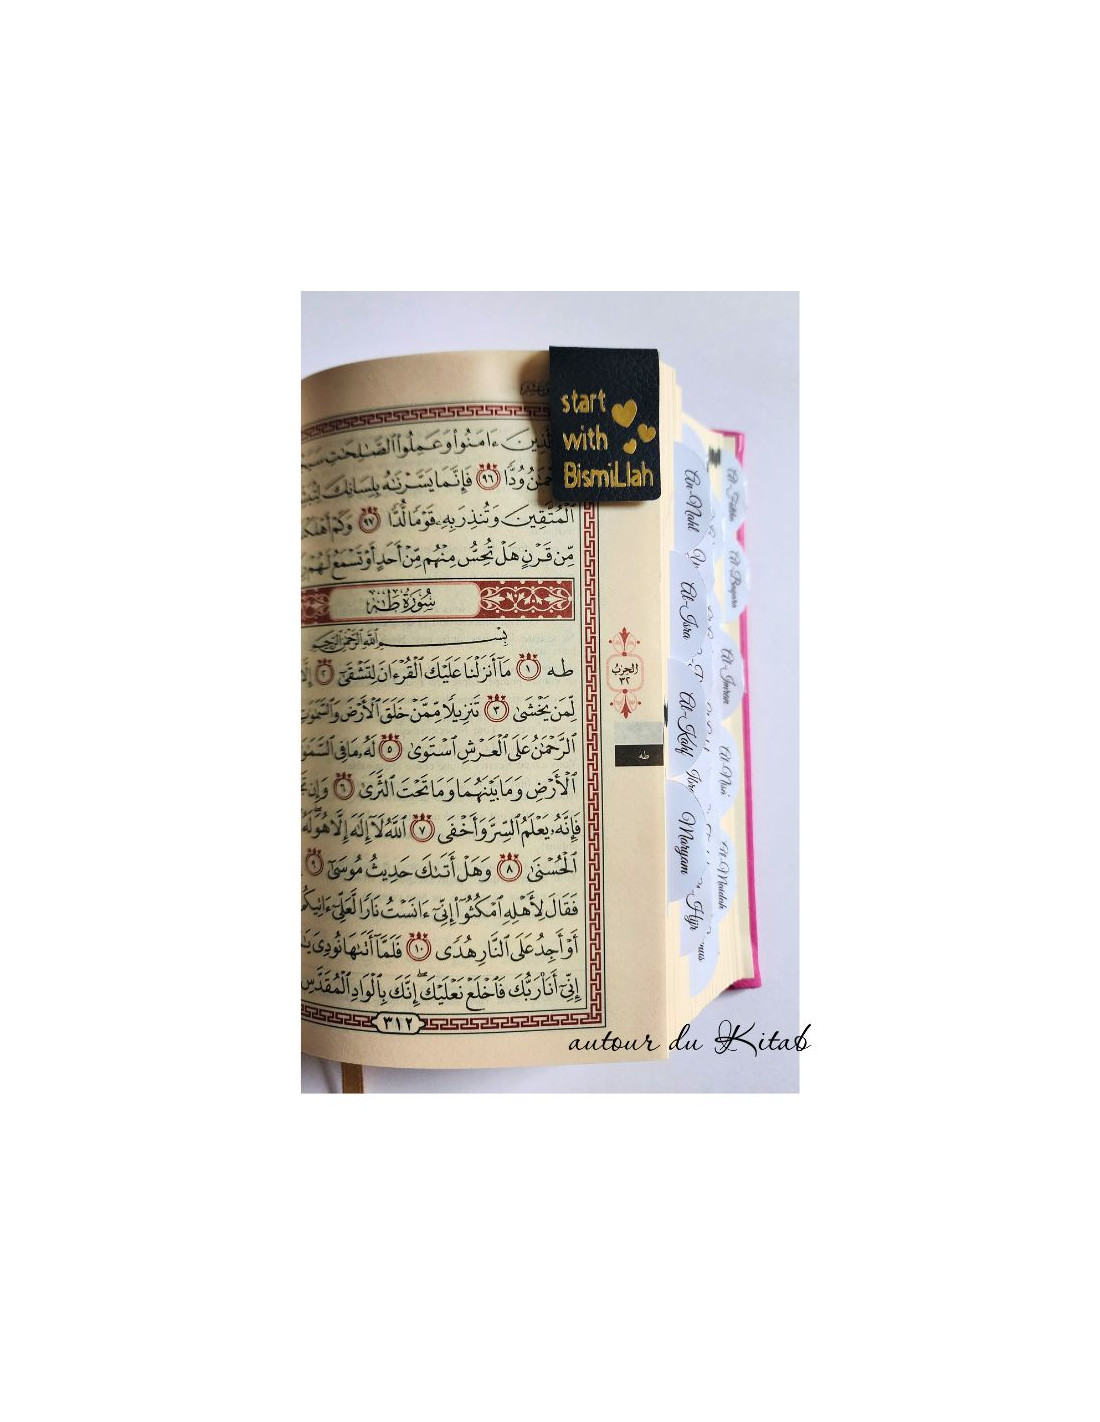 start
with
BismiLlah
ٱلَّذِينَ ءَامَنُوا۟ وَعَمِلُوا۟ ٱلصَّـٰلِحَـٰتِ
وُدًّا ٩٦ فَإِنَّمَا يَسَّرْنَـٰهُ بِلِسَانِكَ
ٱلْمُتَّقِينَ وَتُنذِرَ بِهِۦ قَوْمًا لُّدًّا ٩٧ وَكَمْ أَهْلَكْنَا
مِّن قَرْنٍ هَلْ تُحِسُّ مِنْهُم مِّنْ أَحَدٍ أَوْ تَسْمَعُ لَهُمْ
سُورَةُ طه
بِسْمِ ٱللَّهِ ٱلرَّحْمَـٰنِ ٱلرَّحِيمِ
طه ١ مَآ أَنزَلْنَا عَلَيْكَ ٱلْقُرْءَانَ لِتَشْقَىٰٓ ٢
لِّمَن يَخْشَىٰ ٣ تَنزِيلًا مِّمَّنْ خَلَقَ ٱلْأَرْضَ وَٱلسَّمَـٰوَٰتِ
ٱلرَّحْمَـٰنُ عَلَى ٱلْعَرْشِ ٱسْتَوَىٰ ٥ لَهُۥ مَا فِى
ٱلْأَرْضِ وَمَا بَيْنَهُمَا وَمَا تَحْتَ ٱلثَّرَىٰ ٦ وَإِن
فَإِنَّهُۥ يَعْلَمُ ٱلسِّرَّ وَأَخْفَى ٧ ٱللَّهُ لَآ إِلَـٰهَ إِلَّا هُوَ لَهُ
ٱلْحُسْنَىٰ ٨ وَهَلْ أَتَىٰكَ حَدِيثُ مُوسَىٰٓ ٩
فَقَالَ لِأَهْلِهِ ٱمْكُثُوٓا۟ إِنِّىٓ ءَانَسْتُ نَارًا لَّعَلِّىٓ
أَوْ أَجِدُ عَلَى ٱلنَّارِ هُدًى ١٠ فَلَمَّآ أَتَىٰهَا نُودِىَ
إِنِّىٓ أَنَا۠ رَبُّكَ فَٱخْلَعْ نَعْلَيْكَ إِنَّكَ بِٱلْوَادِ ٱلْمُقَدَّسِ
٣١٢
الحزب
٣٢
طه
An-Nahl
Al-Isra
Al-Kahf
Maryam
Hijr
Al-Baqara
Al-Imran
Al-Maidah
autour du Kitab